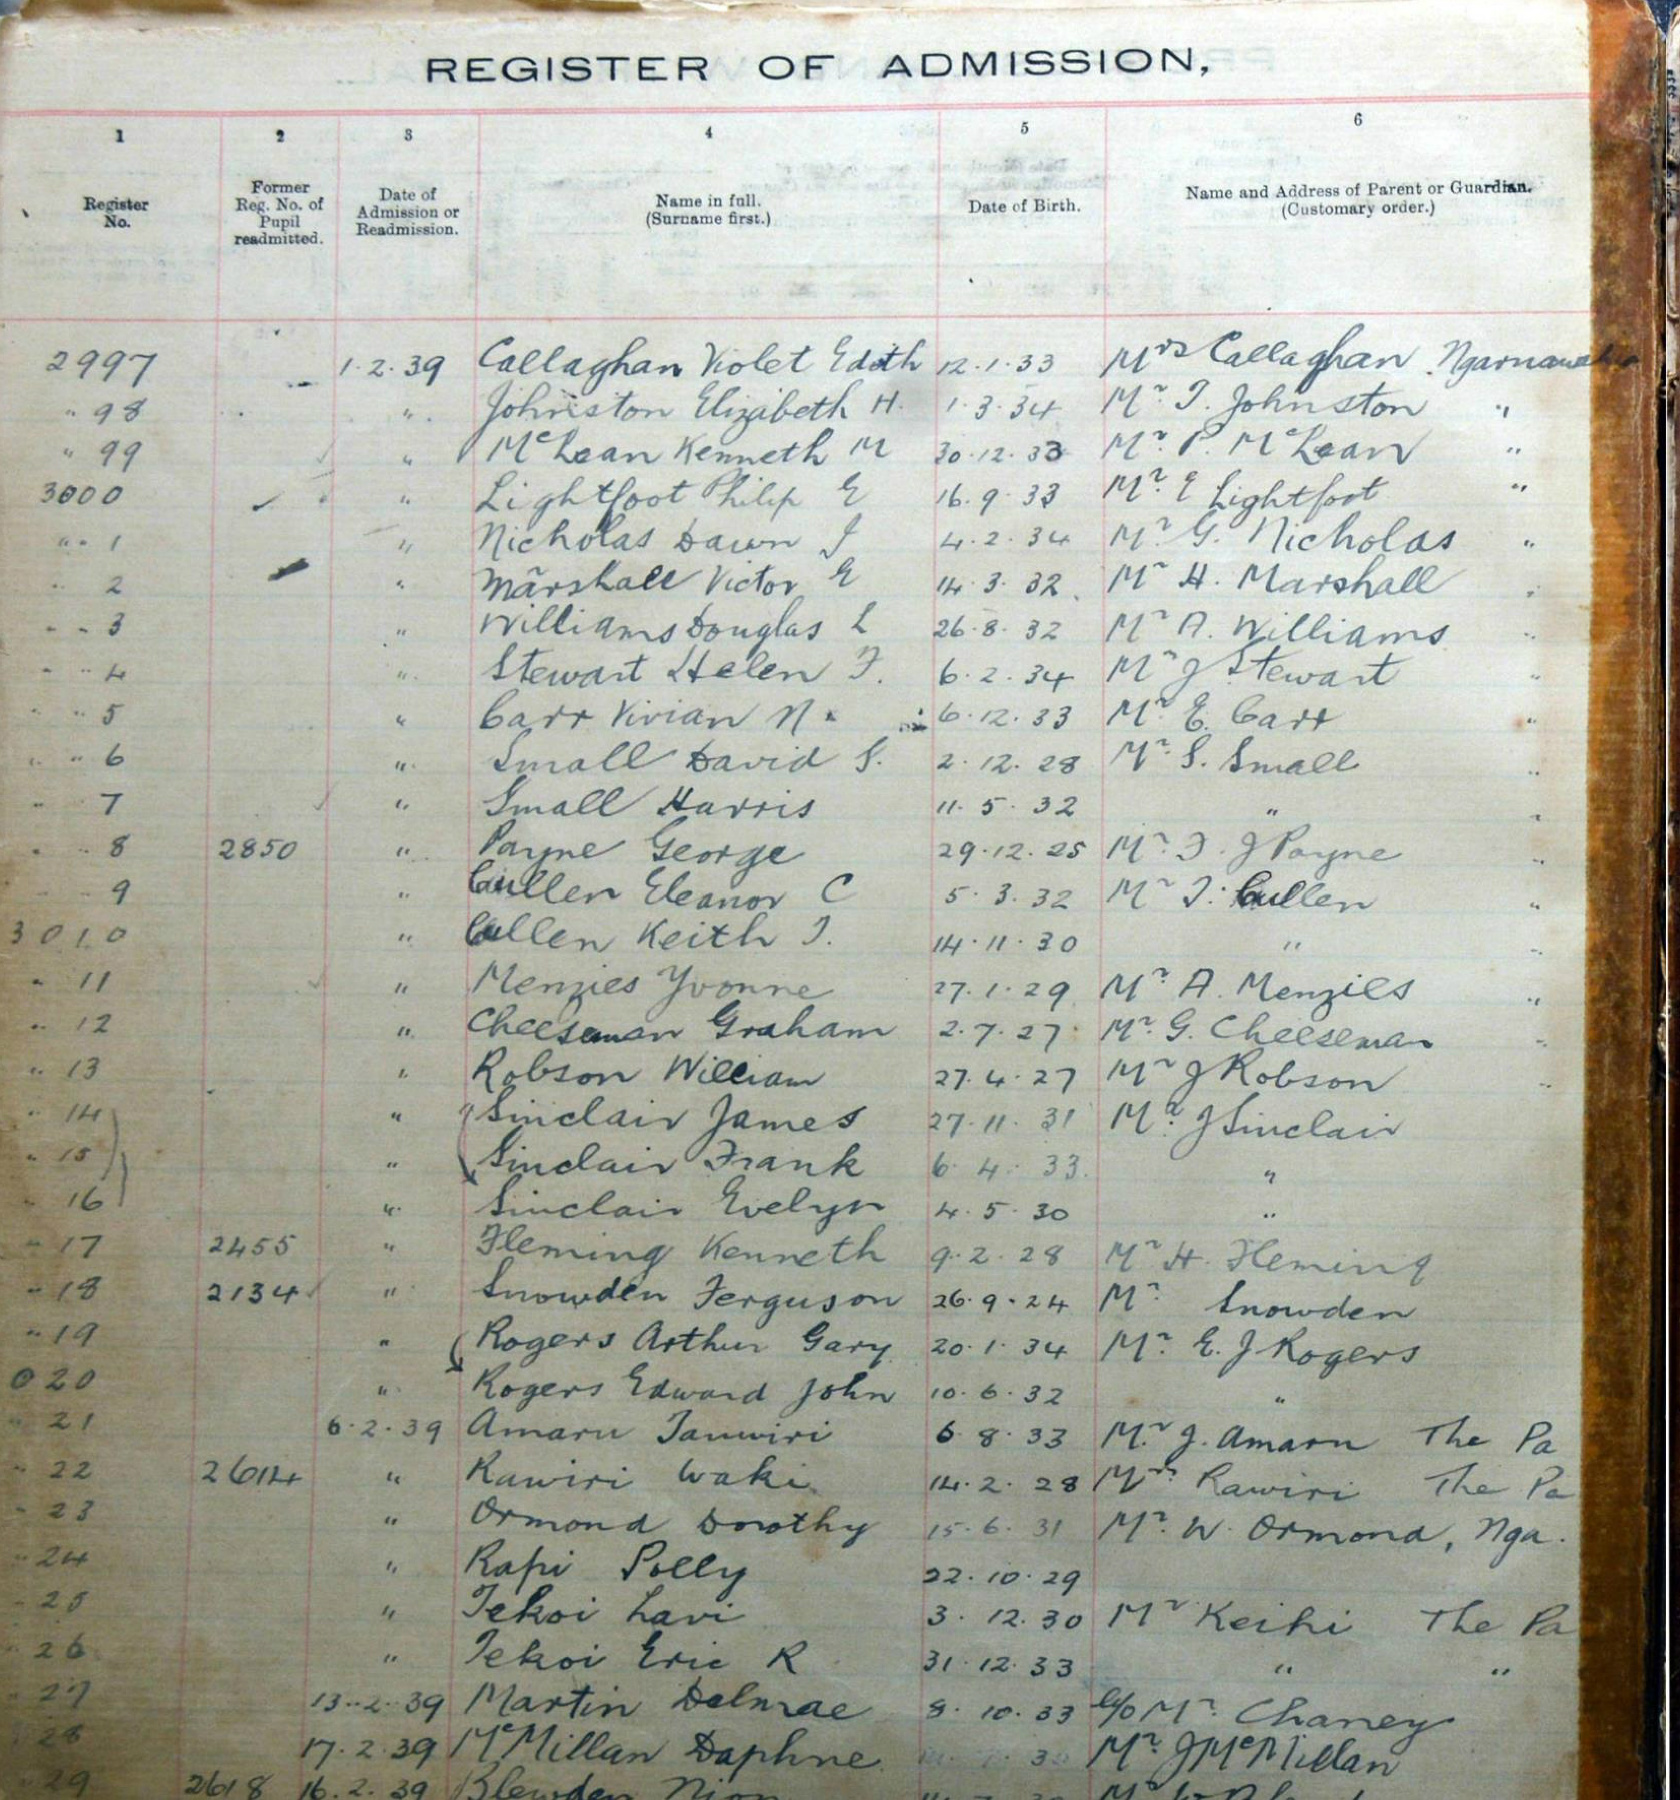 REGISTER OF ADMISSION,
1 2 3 4 5 6
Register No. Former Reg. No. of Pupil readmitted. Date of Admission or Readmission. Name in full. (Surname first.) Date of Birth. Name and Address of Parent or Guardian. (Customary order.)
2997 1.2.39 Callaghan Violet Edith 12.1.33 Mrs Callaghan Ngaruawahia
" 98 " Johnston Elizabeth H. 1.3.34 Mr. T. Johnston "
" 99 " McLean Kenneth M 30.12.33 Mr. P. McLean "
3000 " Lightfoot Philip E 16.9.33 Mr. E Lightfoot "
" " 1 " Nicholas Dawn J 4.2.34 Mr. G. Nicholas "
" 2 " Marshall Victor E 14.3.32 Mr H. Marshall "
" " 3 " Williams Douglas L 26.8.32 Mr A. Williams "
" " 4 " Stewart Helen F. 6.2.34 Mr J Stewart "
" " 5 " Carr Vivian N. 6.12.33 Mr. E. Carr "
" " 6 " Small David S. 2.12.28 Mr. S. Small "
" 7 " Small Harris 11.5.32 " "
" " 8 2850 " Payne George 29.12.25 Mr. F. J Payne "
" " 9 " Cullen Eleanor C 5.3.32 Mr T. Cullen "
3010 " Cullen Keith T. 14.11.30 " "
" 11 " Menzies Yvonne 27.1.29 Mr. A. Menzies "
" 12 " Cheeseman Graham 2.7.27 Mr. G. Cheeseman "
" 13 " Robson William 27.4.27 Mr J Robson "
" 14 " Sinclair James 27.11.31 Mr. J Sinclair
" 15 " Sinclair Frank 6.4.33. "
" 16 " Sinclair Evelyn 4.5.30 "
" 17 2455 " Fleming Kenneth 9.2.28 Mr H. Fleming
" 18 2134 " Snowden Ferguson 26.9.24 Mr Snowden
" 19 " Rogers Arthur Gary 20.1.34 Mr. E. J Rogers
020 " Rogers Edward John 10.6.32 "
" 21 6.2.39 Amaru Tauwiri 6.8.33 Mr. J. Amaru The Pa
" 22 2614 " Rawiri Waki 14.2.28 Rawiri The Pa
" 23 " Ormond Dorothy 15.6.31 Mr. W. Ormond, Nga.
" 24 " Rapi Polly 22.10.29
" 25 " Tekoi Lavi 3.12.30 Mr Keihi The Pa
" 26 " Tekoi Eric R 31.12.33 " "
" 27 13.2.39 Martin Delmae 8.10.33 c/o Mr. Chaney
" 28 17.2.39 McMillan Daphne Mr. J McMillan
" 29 2618 16.2.39 Blewden